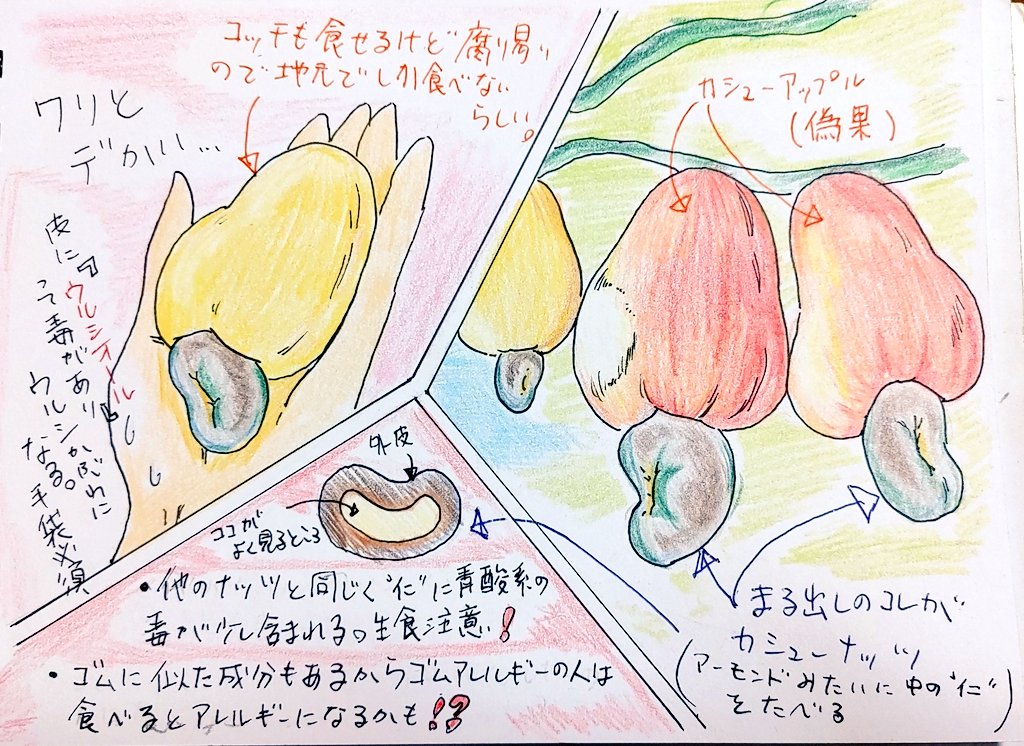 コッチも食せるけど腐り易い
ので地元でしか食べない
らしい。
ワリと
デカい…
皮に『ウルシオール』
って毒がありウルシかぶれに
なる。手袋必須
カシューアップル
(偽果)
外皮
ココが
よく見るところ
・他のナッツと同じく"仁"に青酸系の
毒が少し含まれる。生食注意!
・ゴムに似た成分もあるからゴムアレルギーの人は
食べるとアレルギーになるかも!?
まる出しのコレが
カシューナッツ
(アーモンドみたいに中の"仁"
をたべる)